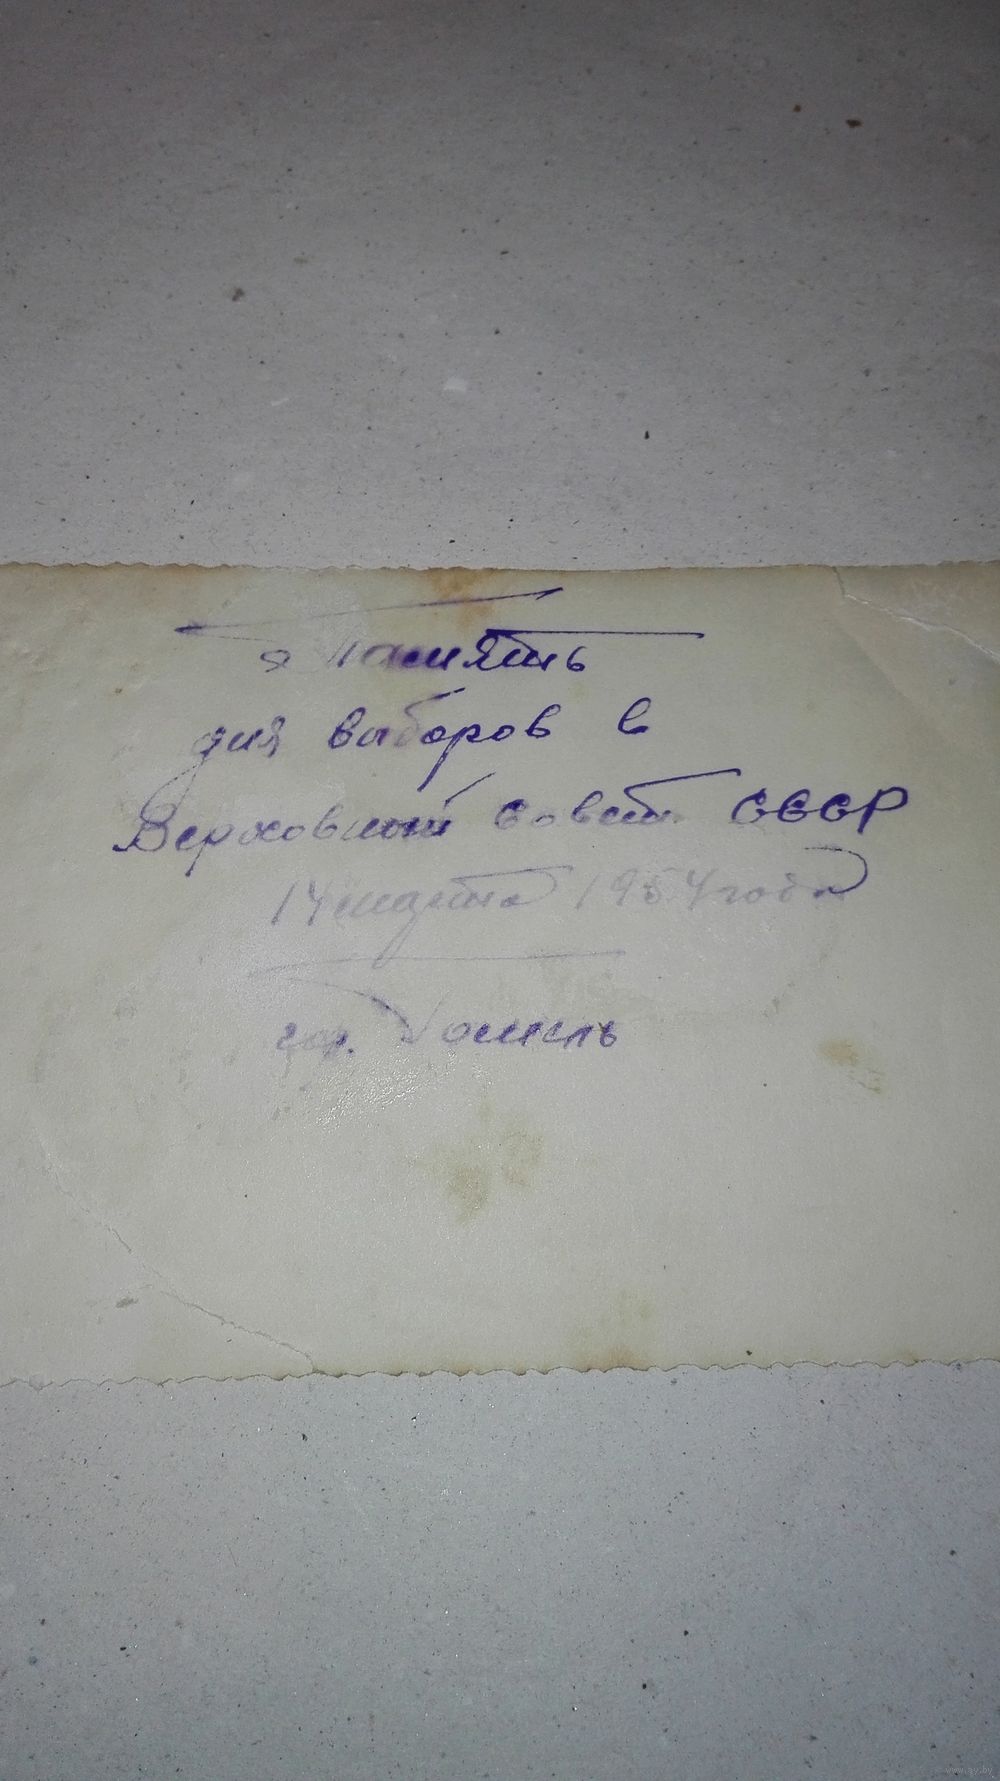 в Память
дня выборов в
Верховный Совет СССР
14 марта 1954 года
гор. Гомель
www.ay.by